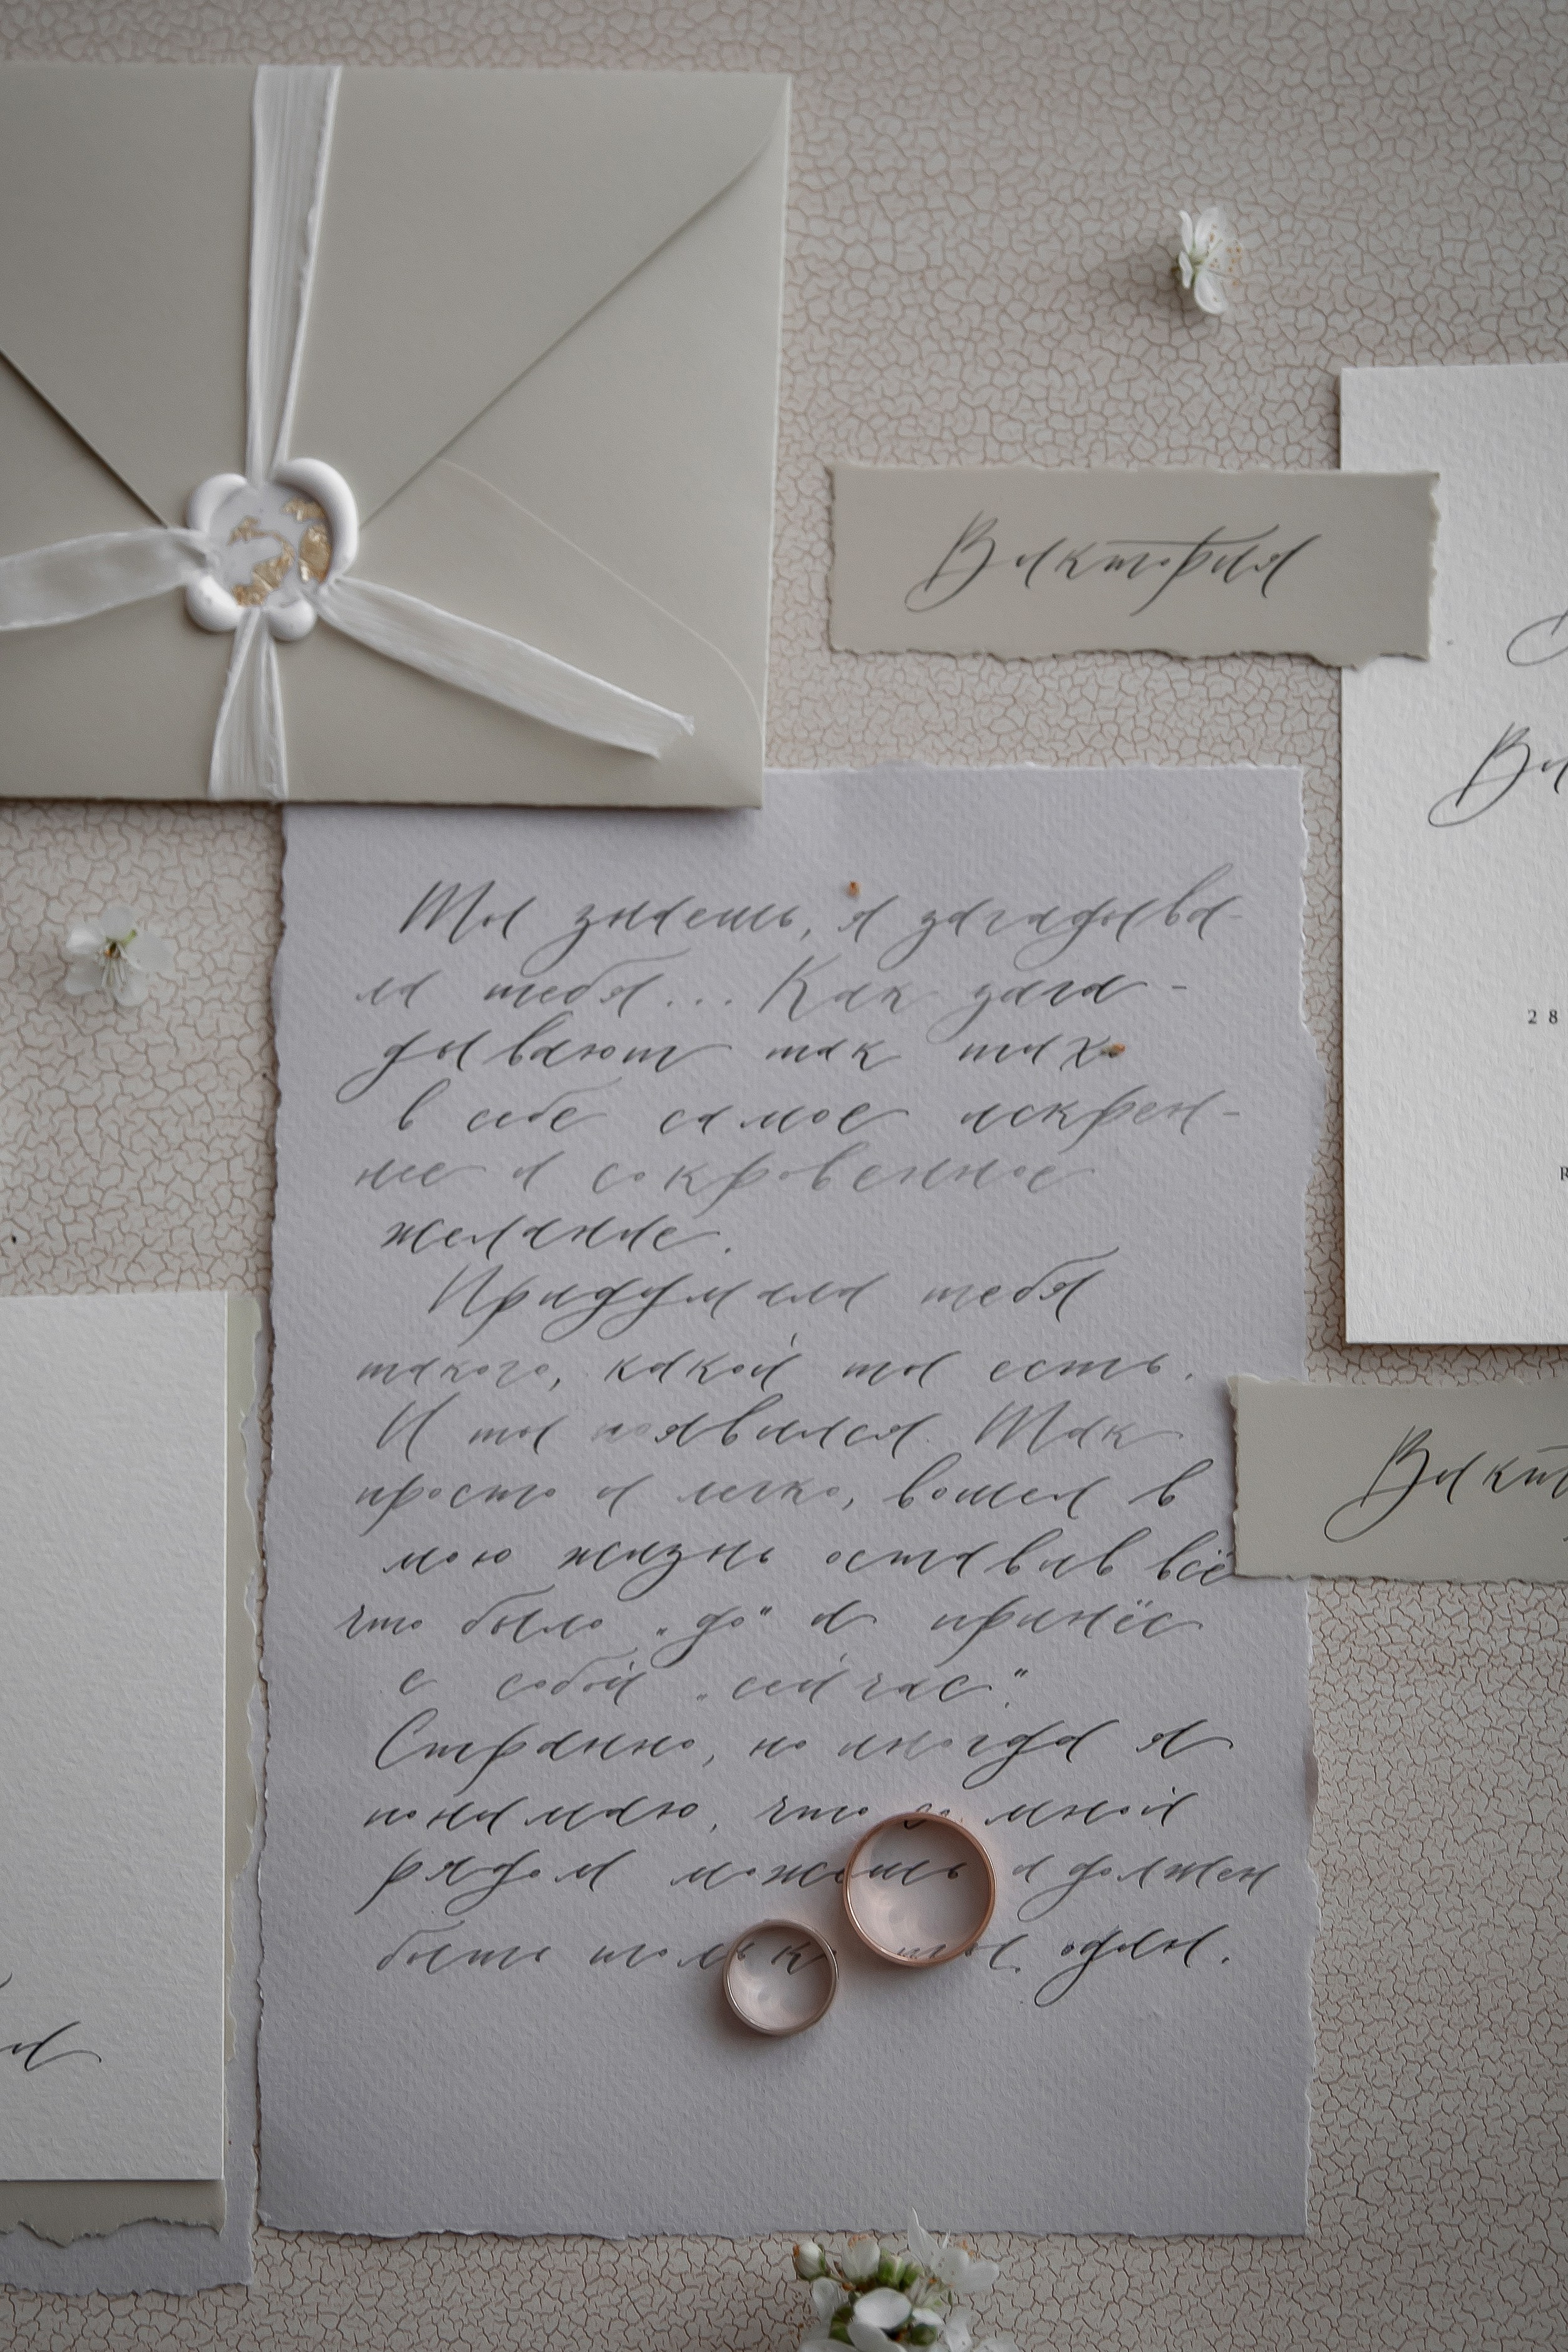 Виктория
Ви
28
R
Ты знаешь, я загадыва-
ла тебя... Как зага-
дывают так тихо
в себе самое искрен-
нее и сокровенное
желание.
Придумала тебя
такого, какой ты есть.
И ты появился. Так
просто и легко, вошел в
мою жизнь оставив всё
что было „до“ и принёс
с собой „сейчас“.
Странно, но иногда я
понимаю, что со мной
рядом можешь и должен
быть только ты один.
Викт